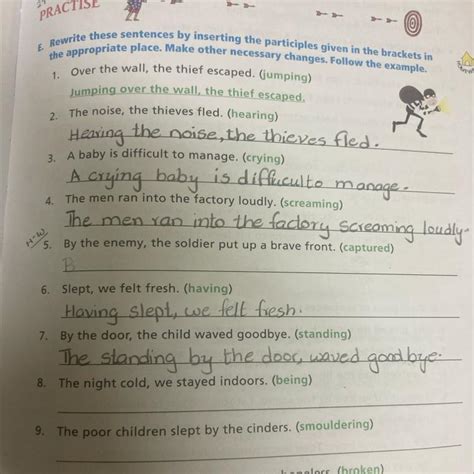 PRACTISE
E. Rewrite these sentences by inserting the participles given in the brackets in
the appropriate place. Make other necessary changes. Follow the example.
1. Over the wall, the thief escaped. (jumping)
Jumping over the wall, the thief escaped.
2. The noise, the thieves fled. (hearing)
Hearing the noise, the thieves fled.
3. A baby is difficult to manage. (crying)
A crying baby is difficulto manage.
4. The men ran into the factory loudly. (screaming)
The men ran into the factory screaming loudly.
H-W
5. By the enemy, the soldier put up a brave front. (captured)
B
6. Slept, we felt fresh. (having)
Having slept, we felt fresh.
7. By the door, the child waved goodbye. (standing)
The standing by the door, waved goodbye.
8. The night cold, we stayed indoors. (being)
9. The poor children slept by the cinders. (smouldering)
(broken)